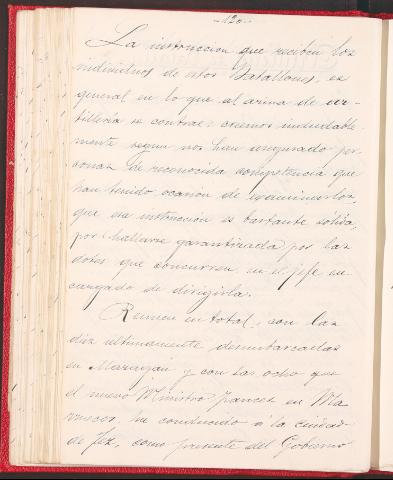 -120-
La instruccion que reciben los
individuos de estos Batallones, es
general en lo que al arma de ar-
tillería se contrae: creemos indudable
mente segun nos han asegurado per
sonas de reconocida competencia que
han tenido ocasion de examinarlos,
que esa instruccion es bastante sólida,
por hallarse garantizada por las
dotes que concurren en el jefe en
cargado de dirigirla.
Reunen en total, con las
diez ultimamente desembarcadas
en Mazagan y con las ocho que
el nuevo Ministro frances en Ma
rruecos, ha conducido á la ciudad
de Fez, como presente del Gobierno